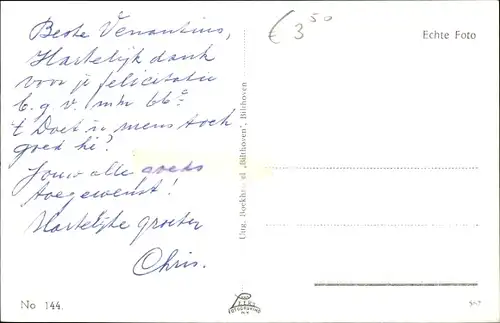 Beste Venantius,
Hartelijk dank
voor je felicitatie
b.g.v. mijn 66e
't Doet 'n mens toch
goed hè?
Jouw alle goeds
toegewenst!
Hartelijke groeten
Chris.
No 144.
€ 3 50
Echte Foto
Uitg. Boekhandel „Bilthoven", Bilthoven